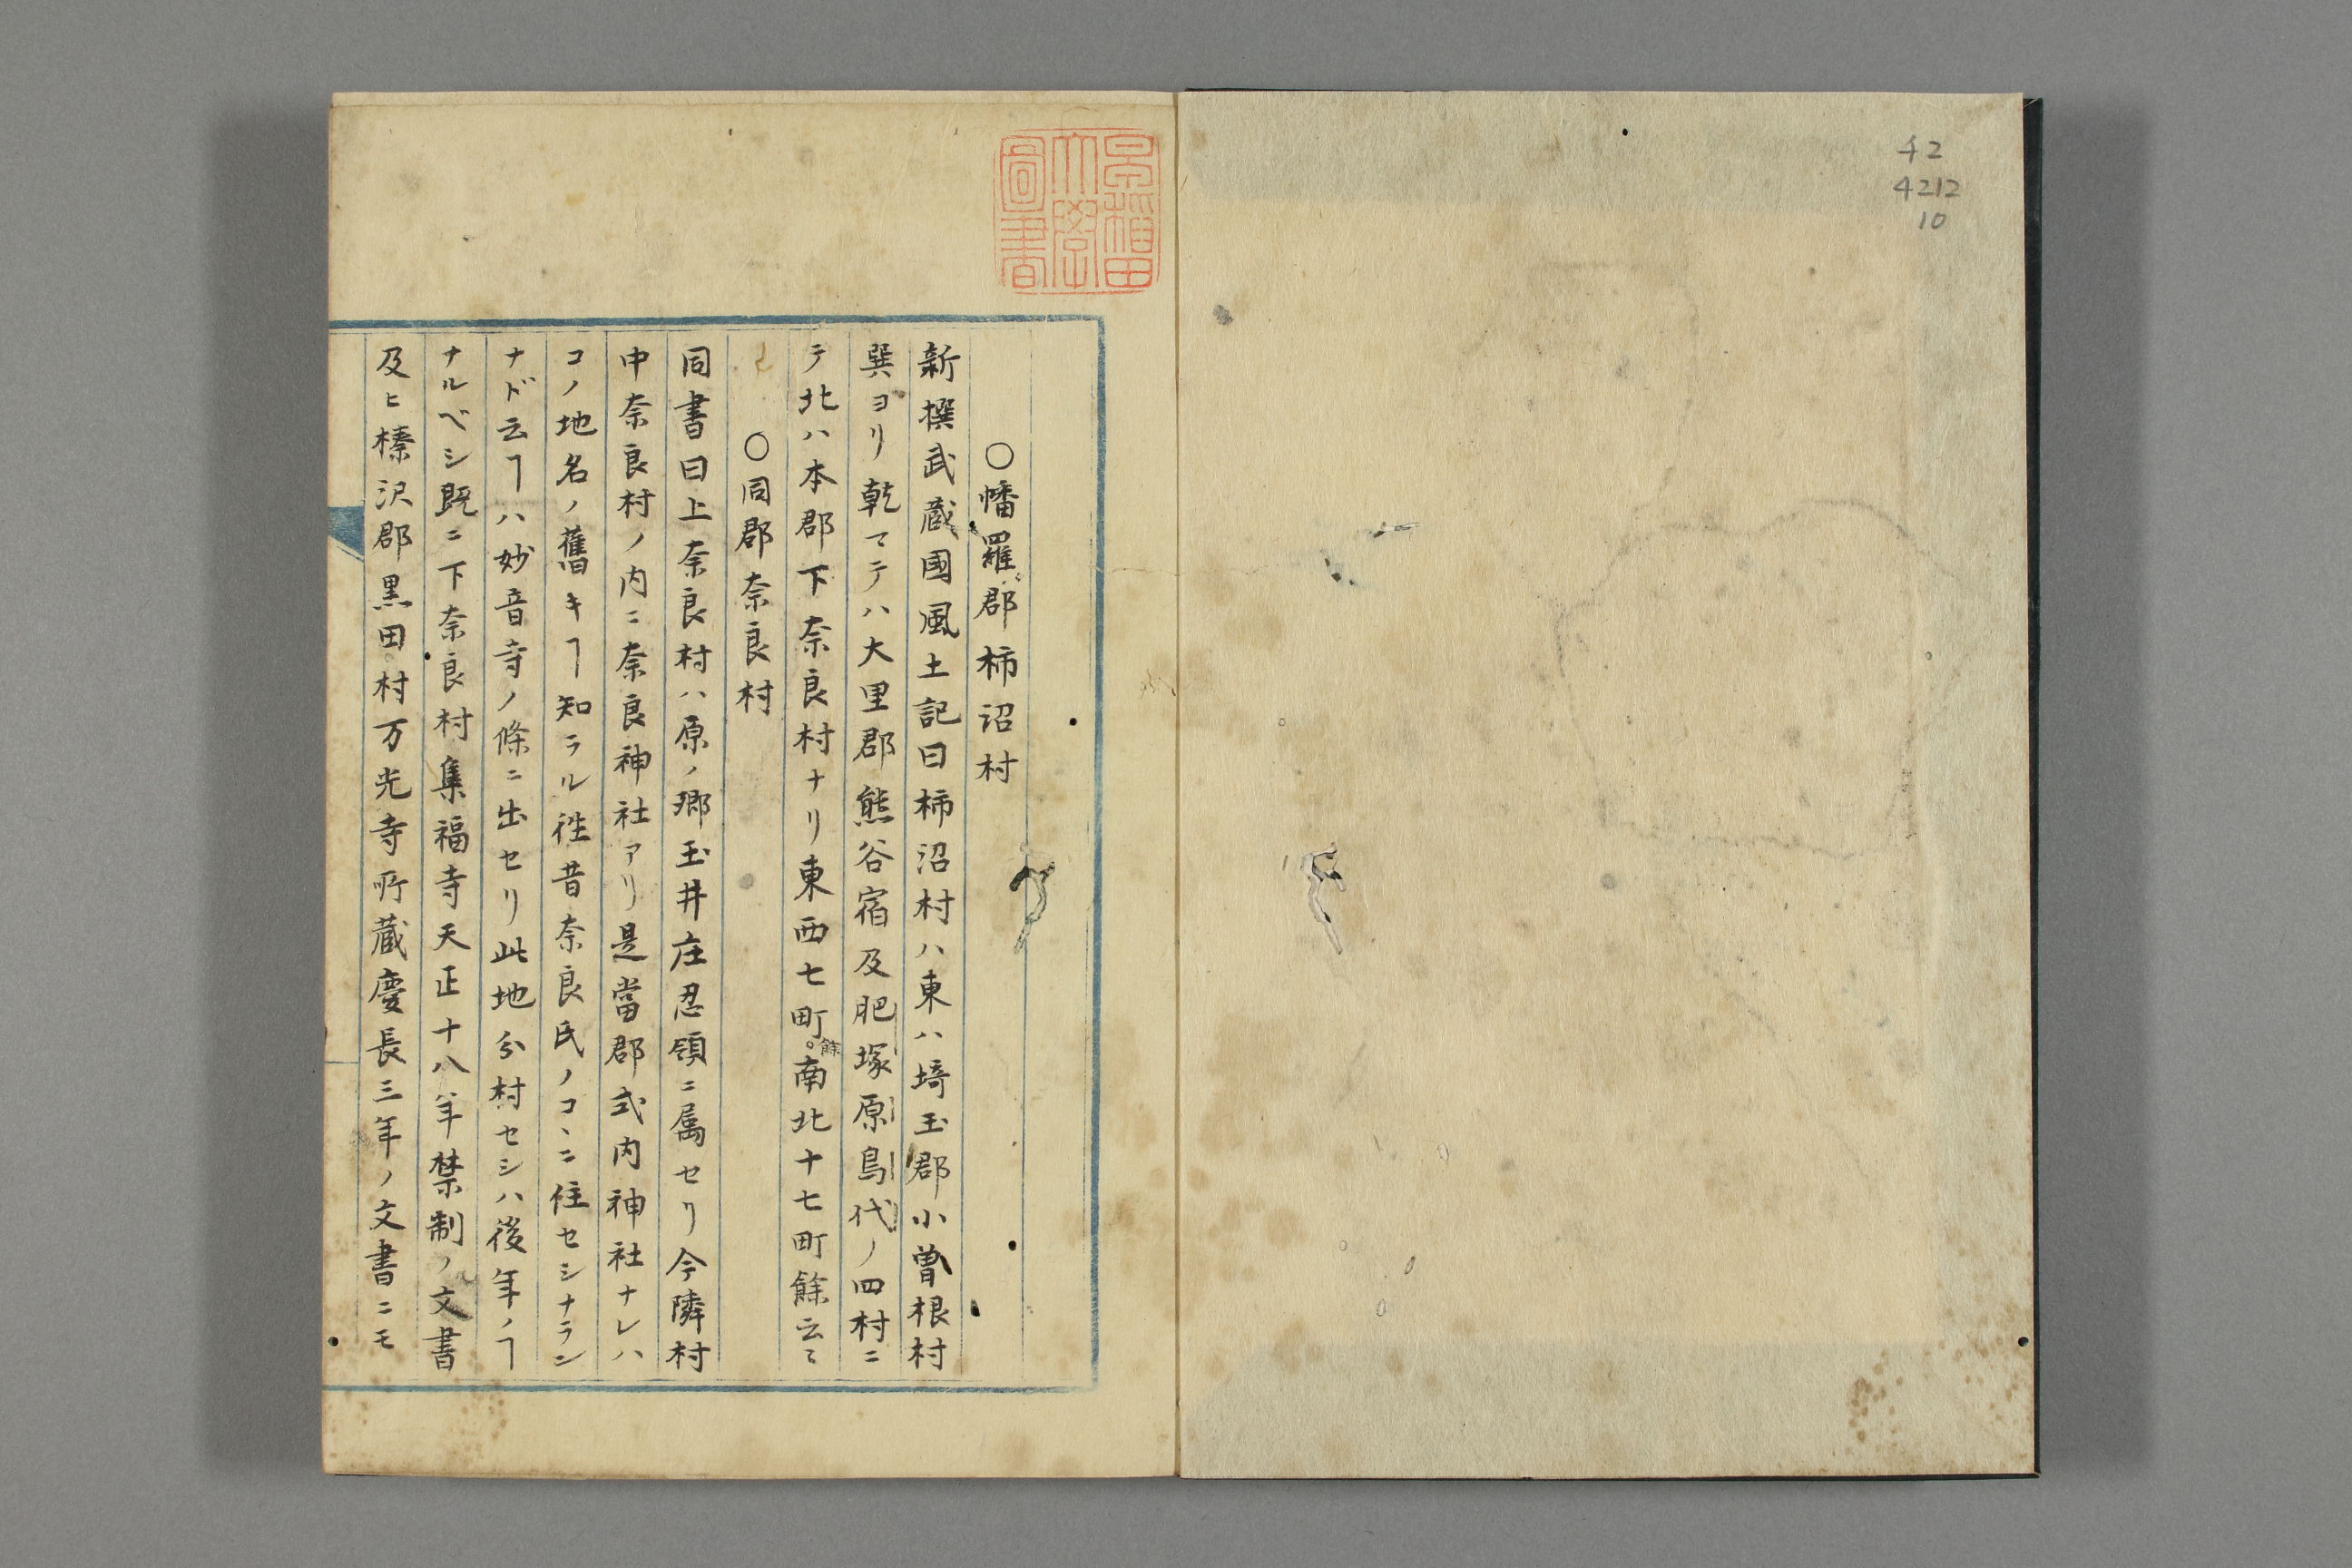 42
4212
10
早稲田
大學
圖書
〇幡羅郡柿沼村
新撰武蔵國風土記曰柿沼村ハ東ハ埼玉郡小曽根村
巽ヨリ乾マテハ大里郡熊谷宿及肥塚原島代ノ四村ニ
テ北ハ本郡下奈良村ナリ東西七町餘南北十七町餘云々
〇同郡奈良村
同書曰上奈良村ハ原ノ郷玉井庄忍領ニ属セリ今隣村
中奈良村ノ内ニ奈良神社アリ是當郡式内神社ナレハ
コノ地名ノ舊キヿ知ラル徃昔奈良氏ノコヽニ住セシナラン
ナド云ヿハ妙音寺ノ條ニ出セリ此地分村セシハ後年ノヿ
ナルベシ既ニ下奈良村集福寺天正十八年禁制ノ文書
及ヒ榛沢郡黒田村万光寺所蔵慶長三年ノ文書ニモ